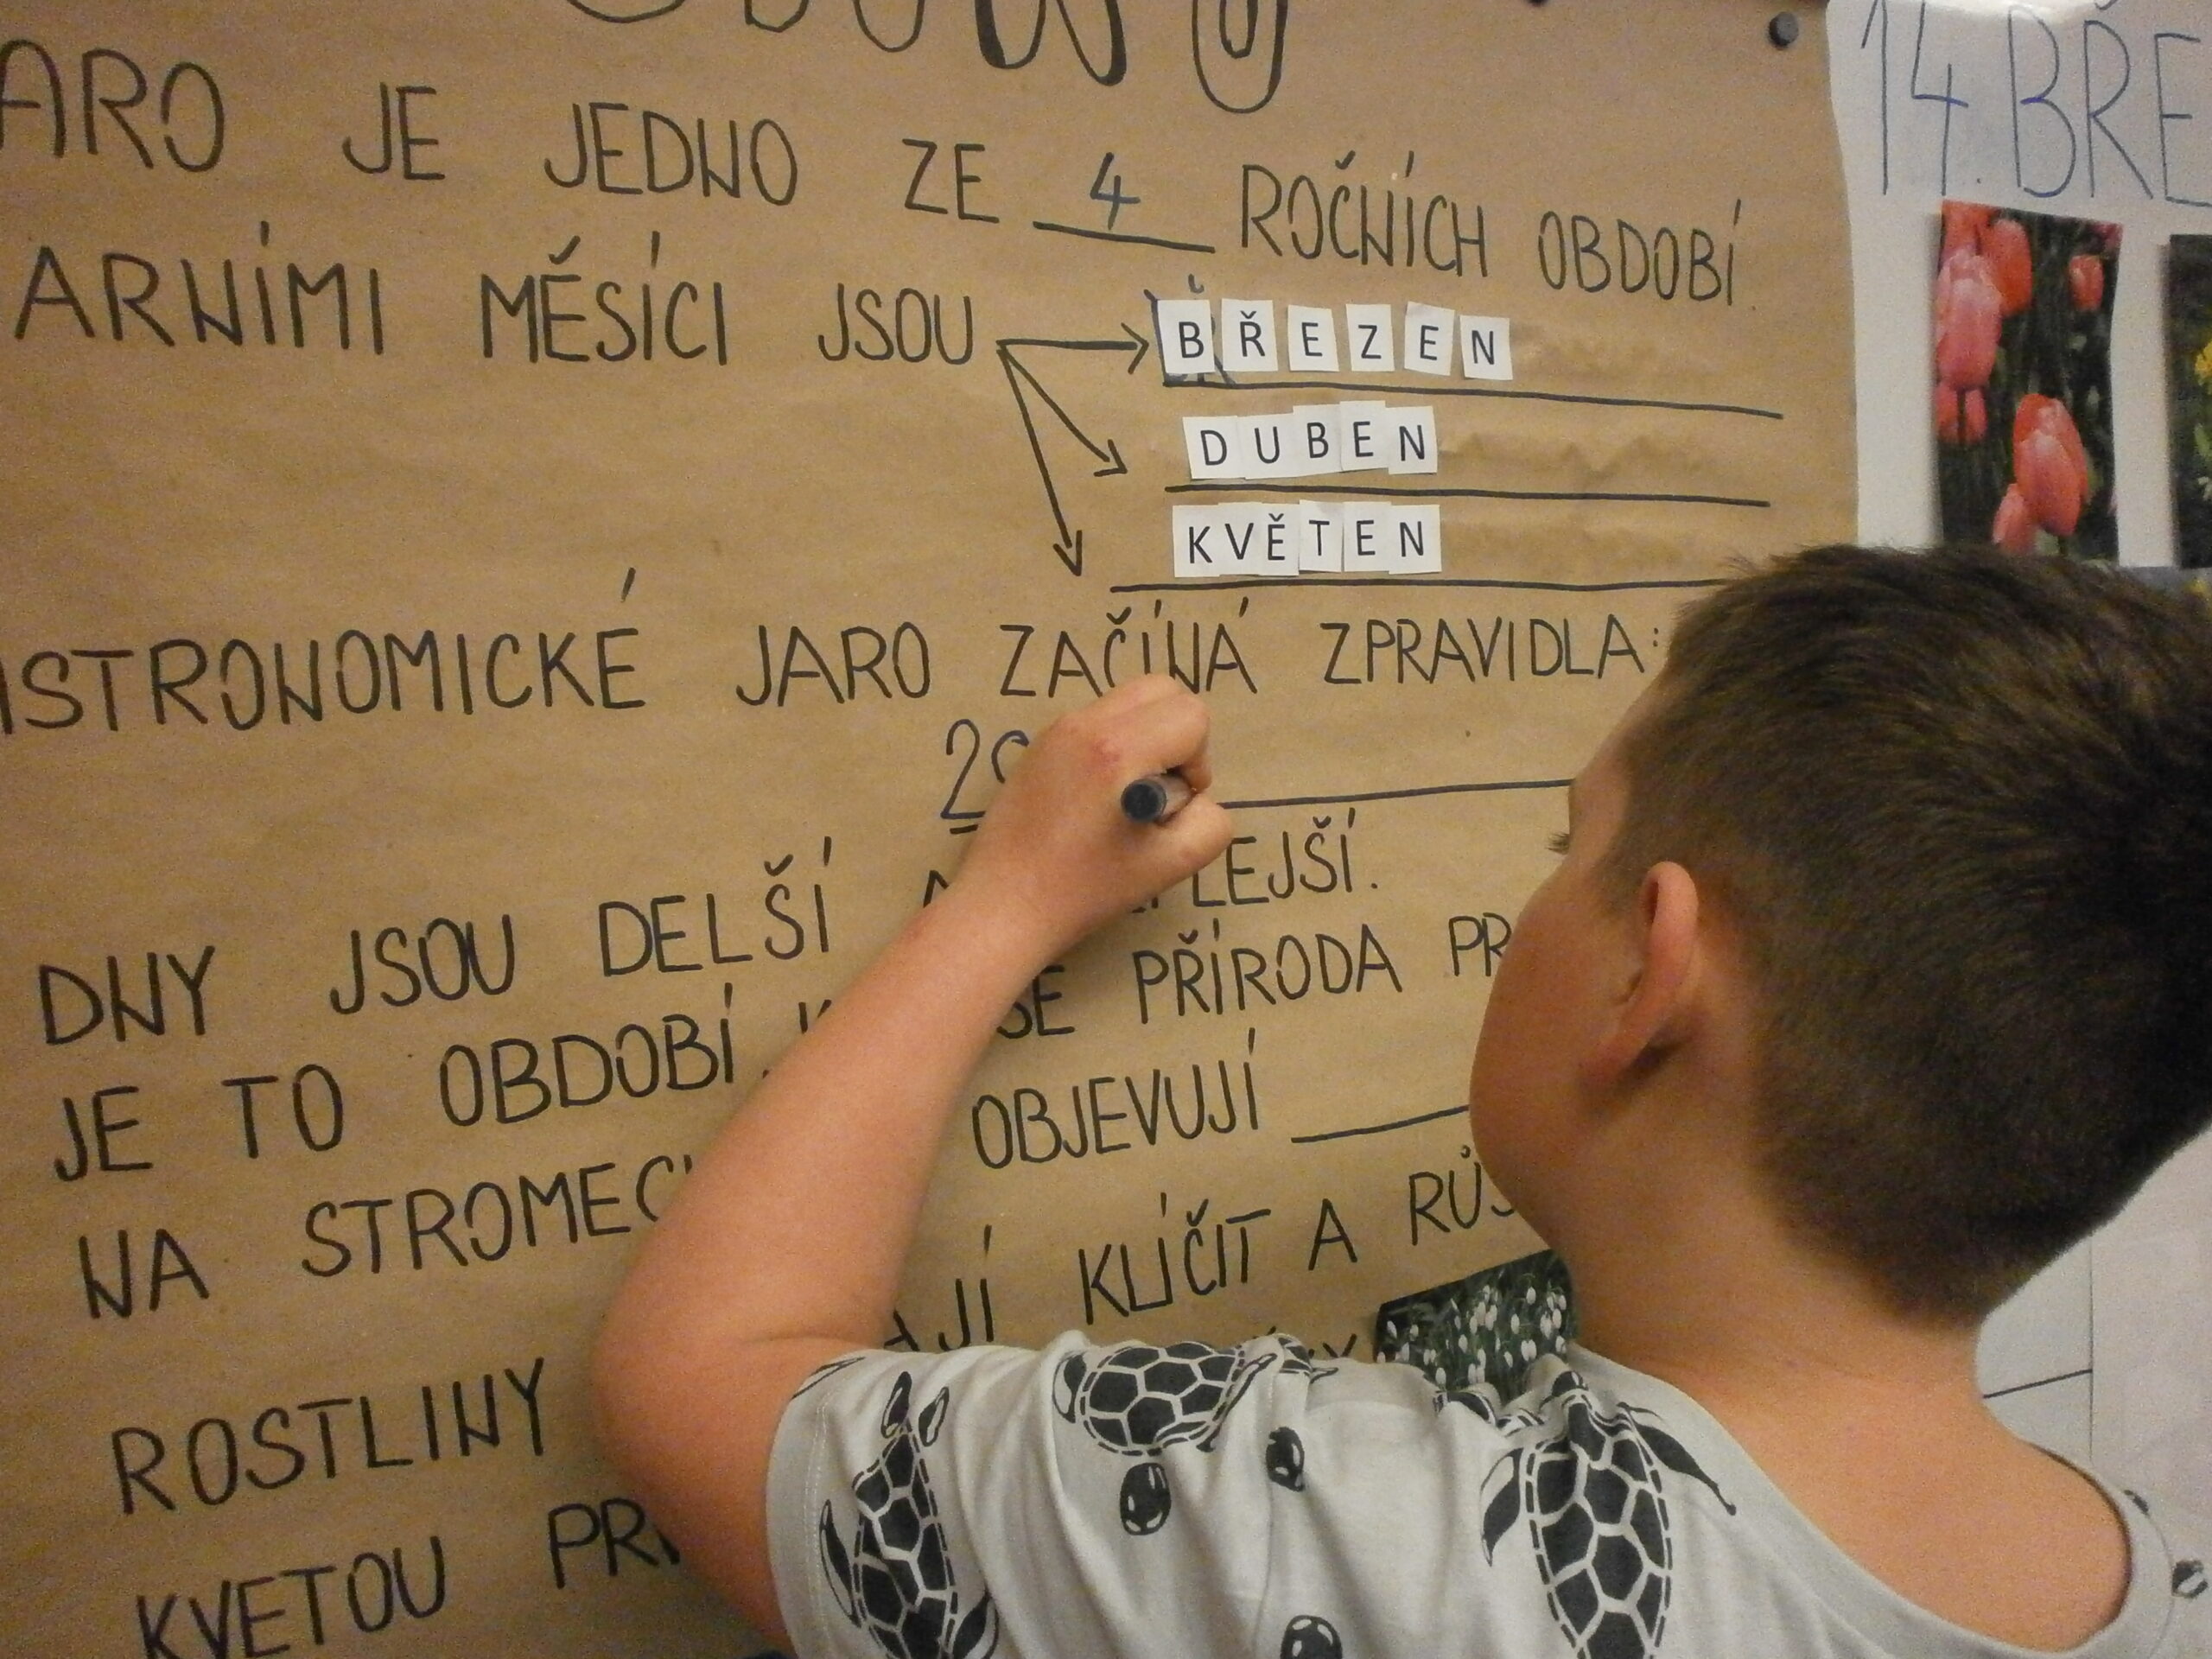 ARO JE JEDNO ZE 4 ROČNÍCH OBDOBÍ.
ARNÍMI MĚSÍCI JSOU BŘEZEN
DUBEN
KVĚTEN
ASTRONOMICKÉ JARO ZAČÍNÁ ZPRAVIDLA:
DNY JSOU DELŠÍ
JE TO OBDOBÍ, SE PŘÍRODA
NA OBJEVUJÍ
ROSTLINY KLÍČIT A
KVETOU
14. BŘE